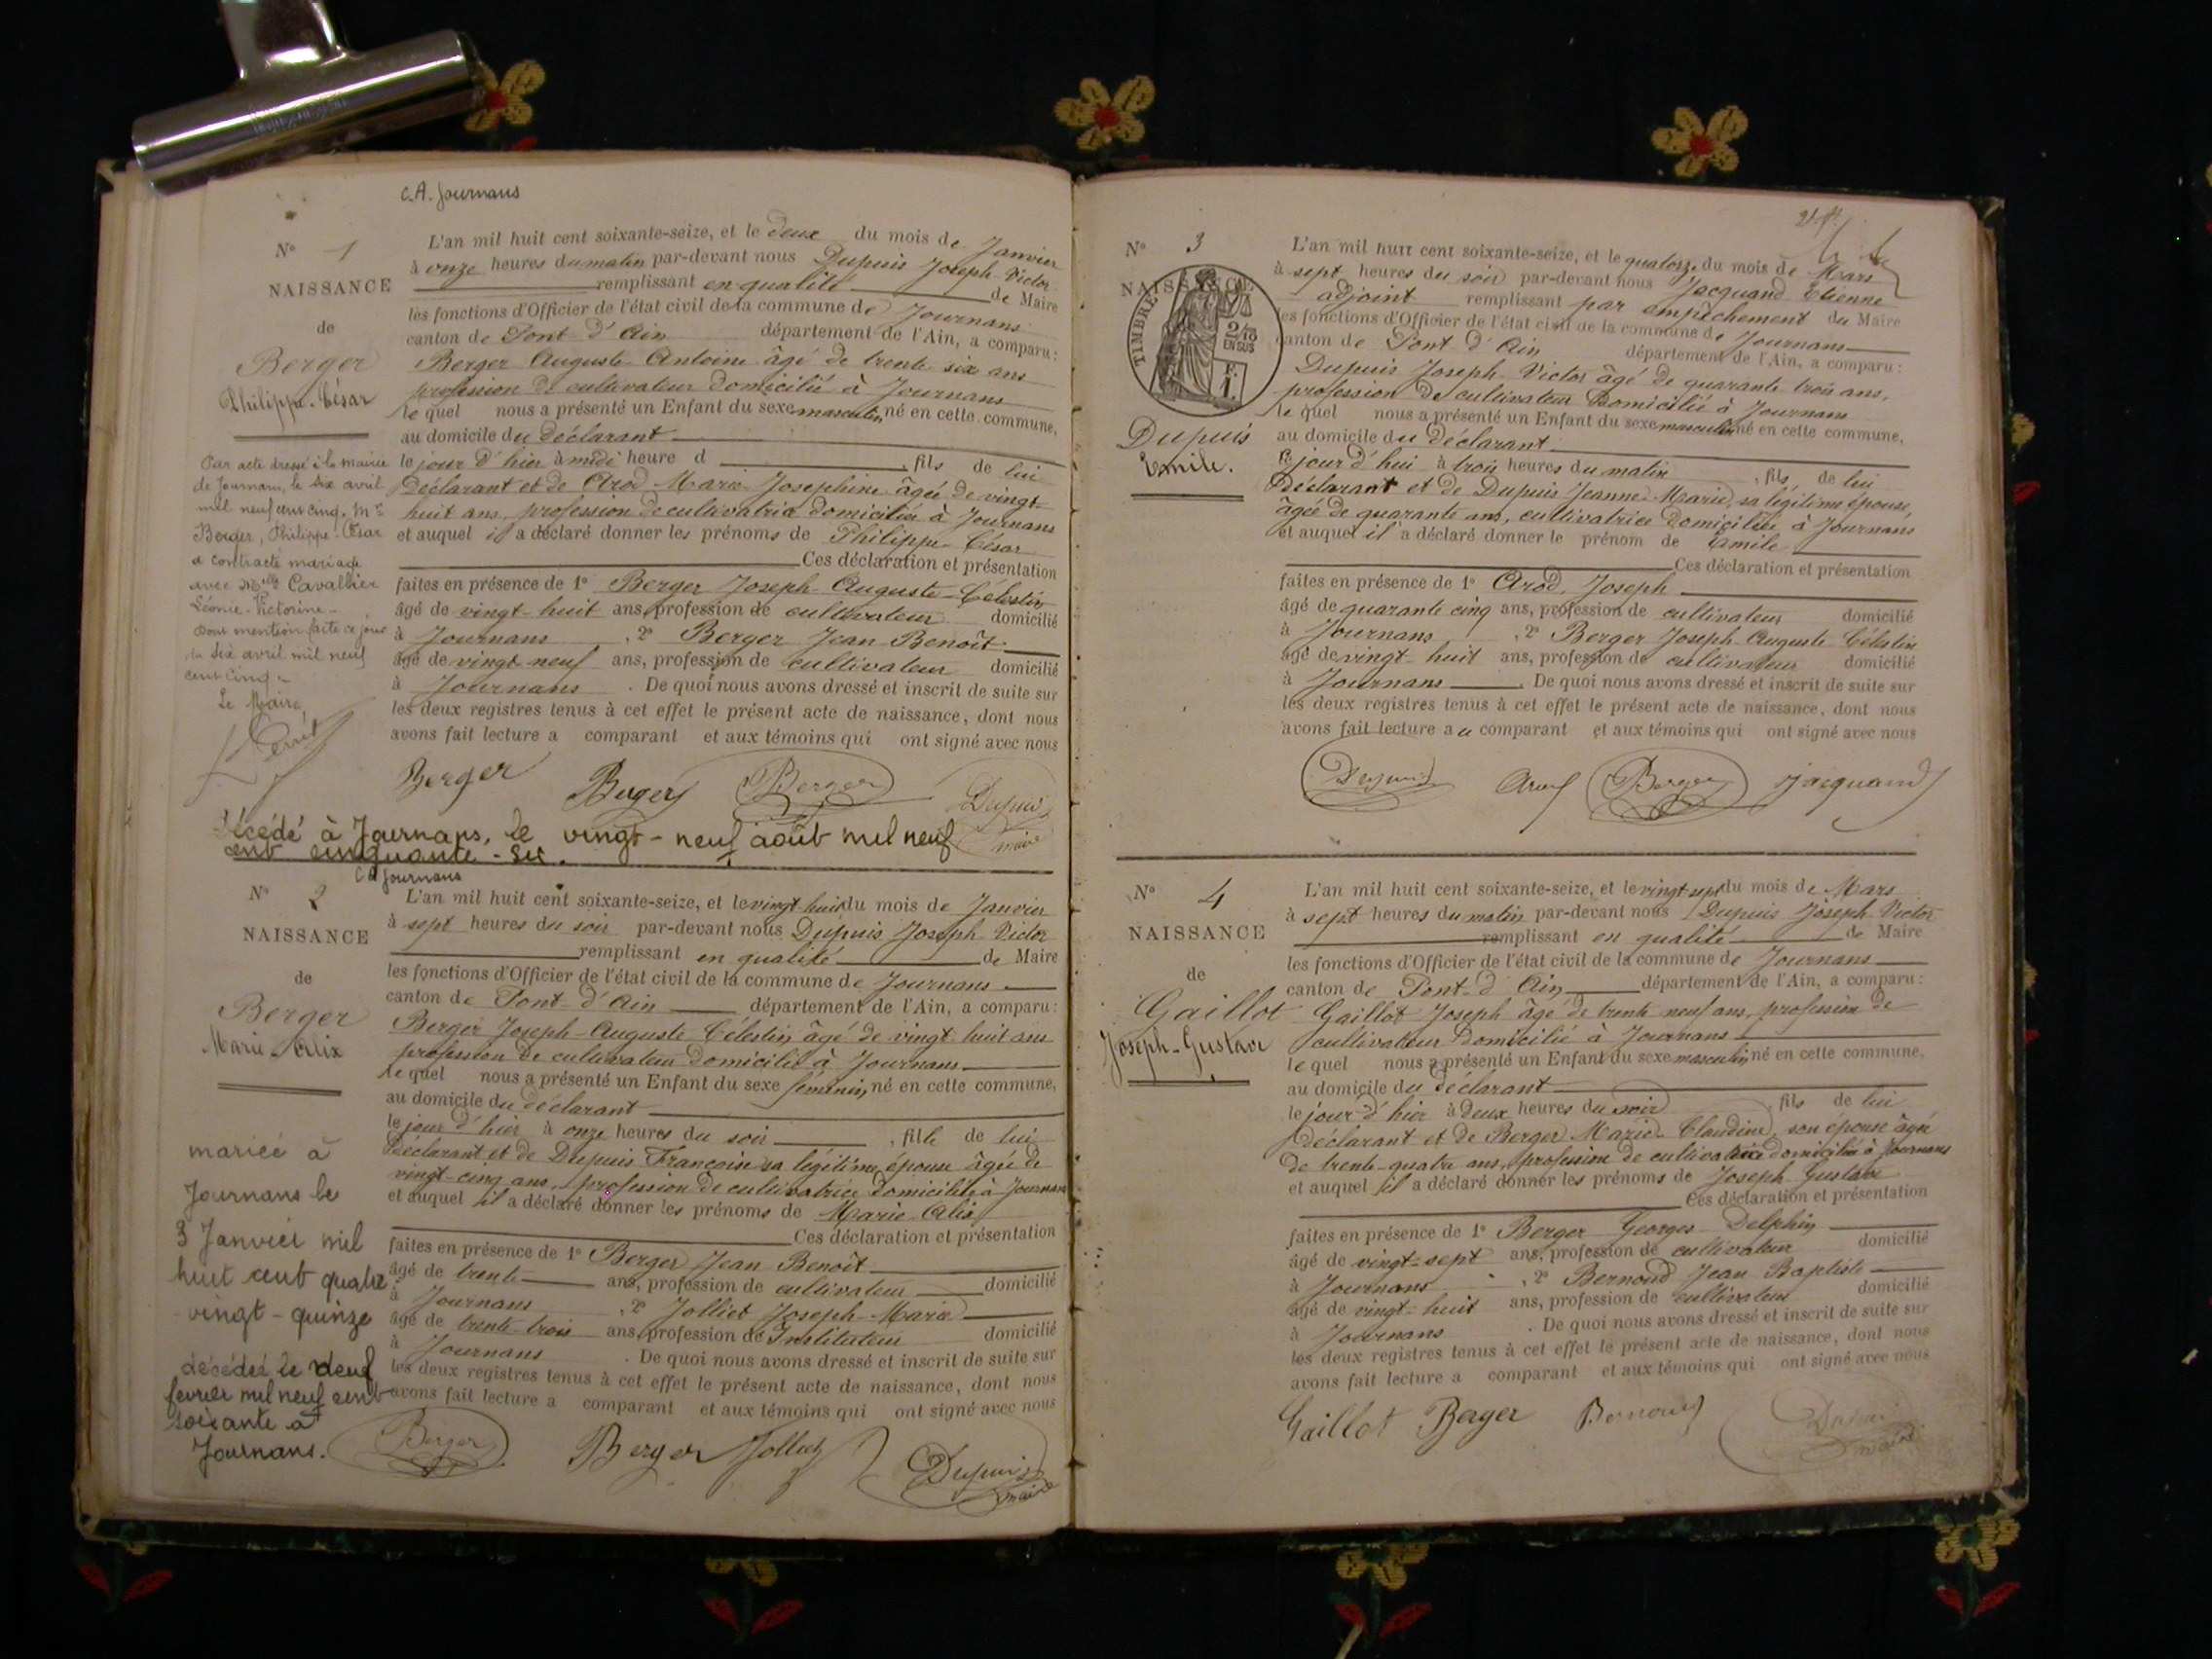 C.A. Journans
N° 1
NAISSANCE
de
Berger
Philippe-César
L'an mil huit cent soixante-seize, et le deux du mois de Janvier
à onze heures du matin par-devant nous Dupuis Joseph-Victor
remplissant en qualité de Maire
les fonctions d'Officier de l'état civil de la commune de Journans
canton de Pont d'Ain département de l'Ain, a comparu:
Berger Auguste Antoine âgé de trente six ans
profession de cultivateur domicilié à Journans
le quel nous a présenté un Enfant du sexe masculin, né en cette commune,
au domicile du déclarant
le jour d'hier à midi heure d , fils de lui
Déclarant et de Arod Marie Josephine âgée de vingt-
huit ans, profession de cultivatrice domiciliée à Journans
et auquel il a déclaré donner les prénoms de Philippe César
Ces déclaration et présentation
faites en présence de 1° Berger Joseph-Auguste-Célestin
âgé de vingt-huit ans, profession de cultivateur domicilié
à Journans , 2° Berger Jean Benoît
âgé de vingt-neuf ans, profession de cultivateur domicilié
à Journans . De quoi nous avons dressé et inscrit de suite sur
les deux registres tenus à cet effet le présent acte de naissance, dont nous
avons fait lecture a comparant et aux témoins qui ont signé avec nous
Berger Berger Berger Dupuis
maire
Par acte dressé à la mairie
de Journans, le six avril
mil neuf cent cinq, Mr
Berger, Philippe-César
a contracté mariage
avec Melle Cavallier
Léonie-Victorine -
dont mention faite ce jour
le six avril mil neuf
cent cinq -
Le Maire,
Décédé à Journans, le vingt-neuf août mil neuf
cent cinquante-six.
C A Journans
N° 2
NAISSANCE
de
Berger
Marie-Alix
L'an mil huit cent soixante-seize, et le vingt-huit du mois de Janvier
à sept heures du soir par-devant nous Dupuis Joseph-Victor
remplissant en qualité de Maire
les fonctions d'Officier de l'état civil de la commune de Journans
canton de Pont-d'Ain département de l'Ain, a comparu:
Berger Joseph-Auguste Célestin, âgé de vingt huit ans
profession de cultivateur domicilié à Journans
le quel nous a présenté un Enfant du sexe féminin, né en cette commune,
au domicile du déclarant
le jour d'hier à onze heures du soir , fille de lui
Déclarant et de Dupuis Françoise sa légitime épouse âgée de
vingt-cinq ans, profession de cultivatrice domiciliée à Journans
et auquel il a déclaré donner les prénoms de Marie Alix
Ces déclaration et présentation
faites en présence de 1° Berger Jean Benoît
âgé de trente ans, profession de cultivateur domicilié
à Journans , 2° Jolliet Joseph-Marie
âgé de trente-trois ans, profession de Instituteur domicilié
à Journans . De quoi nous avons dressé et inscrit de suite sur
les deux registres tenus à cet effet le présent acte de naissance, dont nous
avons fait lecture a comparant et aux témoins qui ont signé avec nous
Berger Berger Jolliet Dupuis
maire
mariée à
Journans le
3 Janvier mil
huit cent quatre
-vingt-quinze
décédée le neuf
fevrier mil neuf cent
soixante à
Journans.
N° 3
NAISSANCE
TIMBRE
2/10
EN SUS
F.
1.
Dupuis
Emile.
L'an mil huit cent soixante-seize, et le quatorze du mois de Mars
à sept heures du soir par-devant nous Jacquand Etienne
adjoint remplissant par empêchement du Maire
les fonctions d'Officier de l'état civil de la commune de Journans
canton de Pont d'Ain département de l'Ain, a comparu:
Dupuis Joseph-Victor âgé de quarante-trois ans,
profession de cultivateur domicilié à Journans
le quel nous a présenté un Enfant du sexe masculin né en cette commune,
au domicile du déclarant
ce jour d'hui à trois heures du matin , fils de lui
Déclarant et de Dupuis Jeanne-Marie, sa légitime épouse,
âgée de quarante ans, cultivatrice domiciliée à Journans
et auquel il a déclaré donner le prénom de Emile
Ces déclaration et présentation
faites en présence de 1° Arod, Joseph
âgé de quarante cinq ans, profession de cultivateur domicilié
à Journans , 2° Berger Joseph-Auguste Célestin
âgé de vingt-huit ans, profession de cultivateur domicilié
à Journans . De quoi nous avons dressé et inscrit de suite sur
les deux registres tenus à cet effet le présent acte de naissance, dont nous
avons fait lecture au comparant et aux témoins qui ont signé avec nous
Dupuis Arod Berger Jacquand
N° 4
NAISSANCE
de
Gaillot
Joseph-Gustave
L'an mil huit cent soixante-seize, et le vingt-sept du mois de Mars
à sept heures du matin par-devant nous Dupuis Joseph-Victor
remplissant en qualité de Maire
les fonctions d'Officier de l'état civil de la commune de Journans
canton de Pont-d'Ain département de l'Ain, a comparu:
Gaillot Joseph âgé de trente neuf ans, profession de
cultivateur domicilié à Journans
le quel nous a présenté un Enfant du sexe masculin, né en cette commune,
au domicile du déclarant
le jour d'hier à deux heures du soir , fils de lui
déclarant et de Berger Marie-Claudine, son épouse âgée
de trente-quatre ans, profession de cultivatrice domiciliée à Journans
et auquel il a déclaré donner les prénoms de Joseph Gustave
Ces déclaration et présentation
faites en présence de 1° Berger Georges-Delphin
âgé de vingt-sept ans, profession de cultivateur domicilié
à Journans , 2° Bernoud Jean Baptiste
âgé de vingt-huit ans, profession de cultivateur domicilié
à Journans . De quoi nous avons dressé et inscrit de suite sur
les deux registres tenus à cet effet le présent acte de naissance, dont nous
avons fait lecture a comparant et aux témoins qui ont signé avec nous
Gaillot Berger Bernoud Dupuis
maire